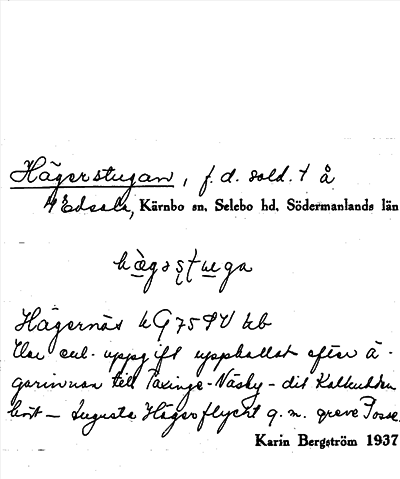 Hägerstugan, f.d. sold. t å
Edsala, Kärnbo sn, Selebo hd, Södermanlands län
hägerstuga
Hägernäs
Har enl. uppgift uppkallats efter ä-
garinnan till Taxinge-Näsby - dit
hört - Augusta Hägerflycht g. m. greve Posse.
Karin Bergström 1937